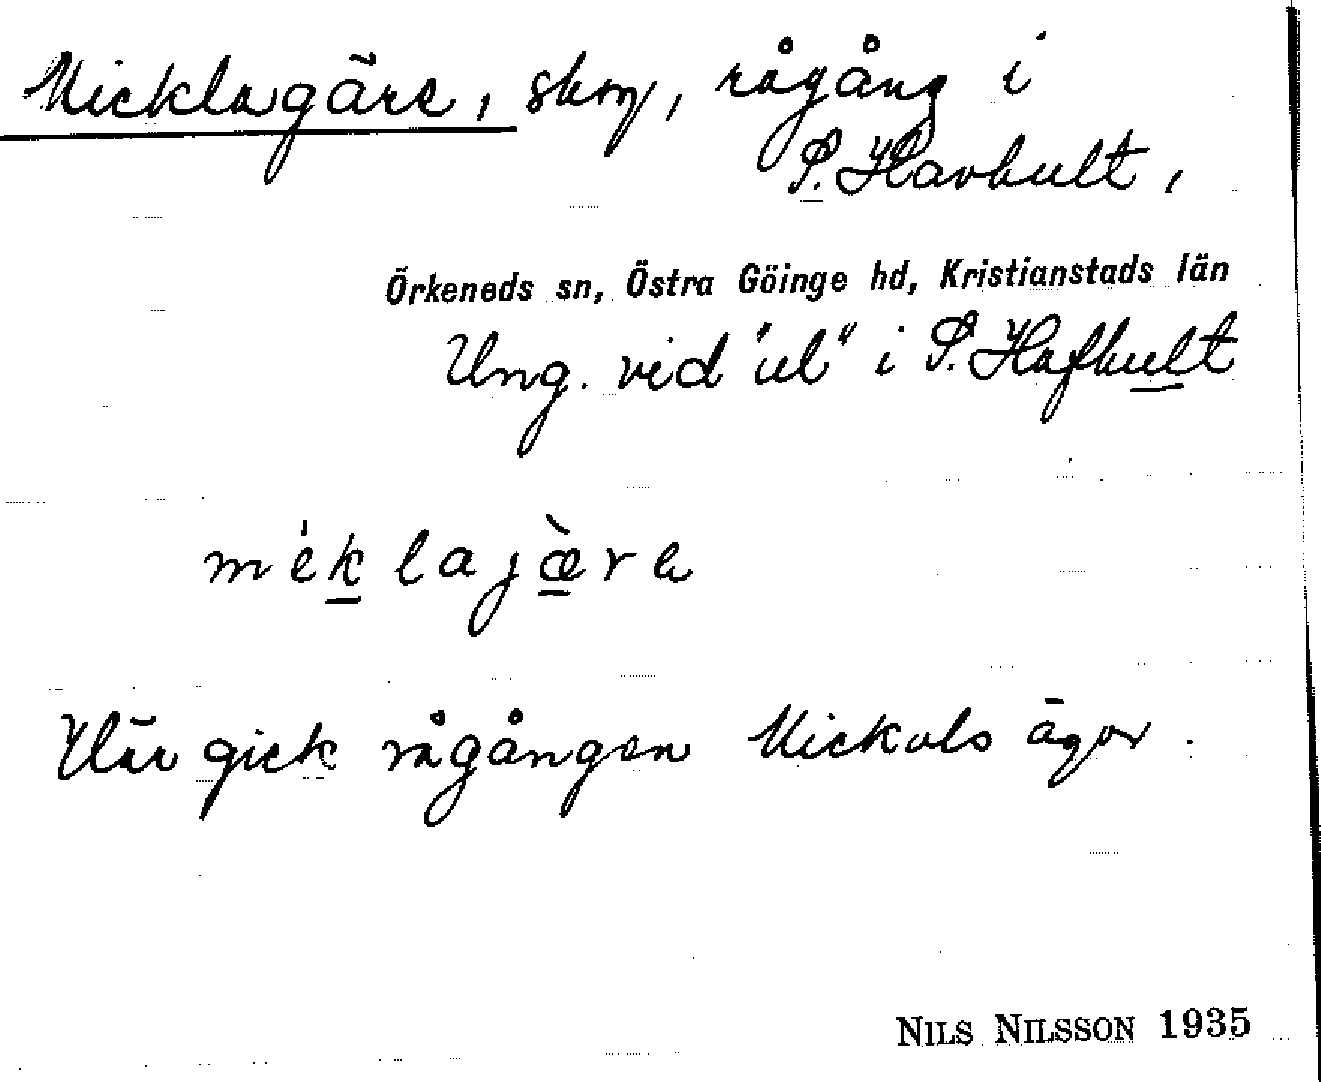 Micklagäre, skog, rågång i
S. Havhult,
Örkeneds sn, Östra Göinge hd, Kristianstads län
Ung. vid "ul" i S. Hafhult
méklajæ̀re
Här gick rågången Mickols ägor.
NILS NILSSON 1935